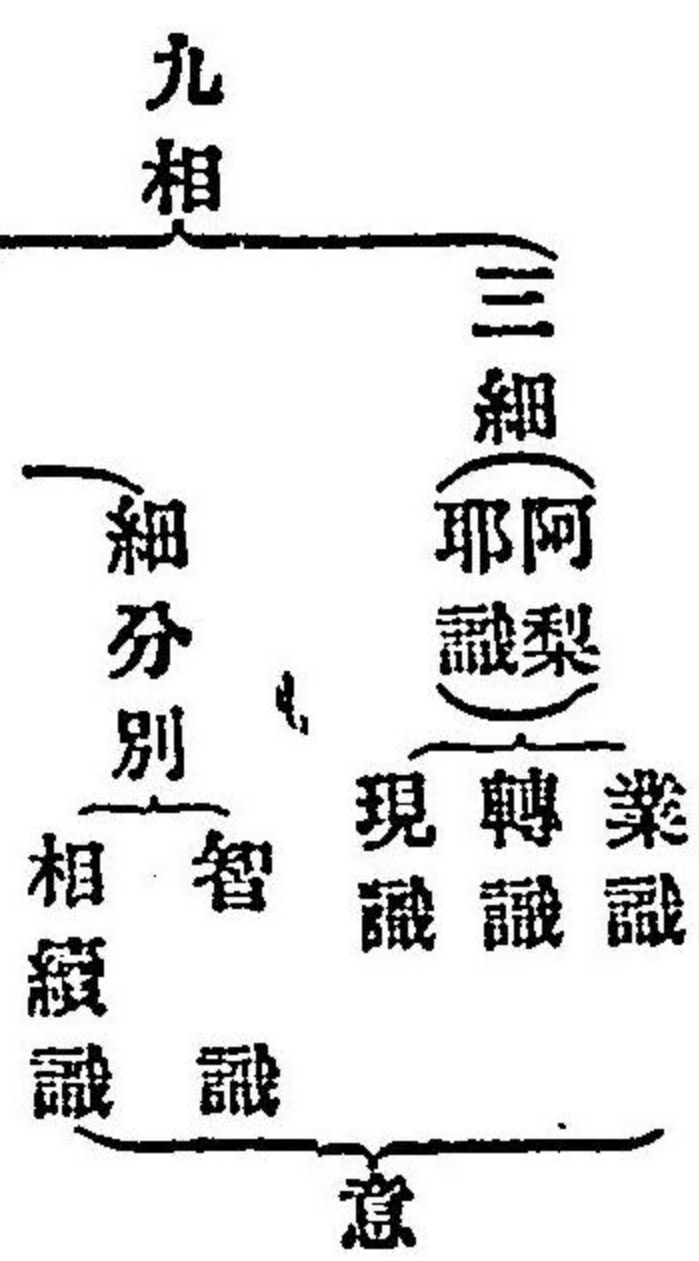 九相
三細
阿梨
耶識
業識
轉識
現識
細分別
智識
相續識
意